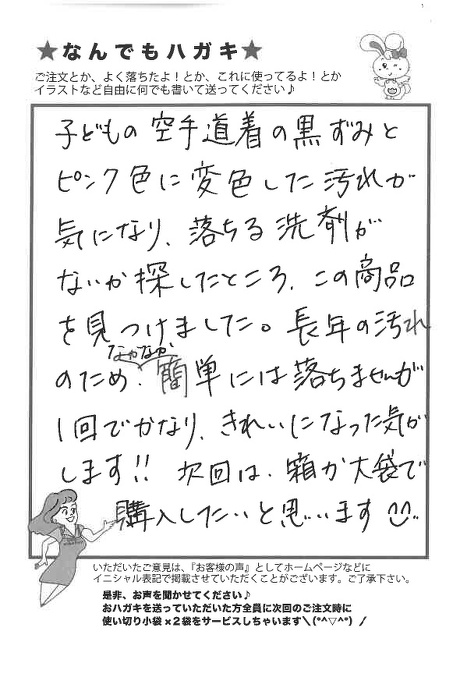 ★なんでもハガキ★
ご注文とか、よく落ちたよ！とか、これに使ってるよ！とか
イラストなど自由に何でも書いて送ってください♪
子どもの空手道着の黒ずみと
ピンク色に変色した汚れが
気になり、落ちる洗剤が
ないか探したところ、この商品
を見つけました。長年の汚れ
のため、なかなか簡単には落ちませんが
1回でかなり、きれいになった気が
します!! 次回は、箱か大袋で
購入したいと思います
いただいたご意見は、『お客様の声』としてホームページなどに
イニシャル表記で掲載させていただくことがございます。ご了承下さい。
是非、お声を聞かせてください♪
おハガキを送っていただいた方全員に次回のご注文時に
使い切り小袋×2袋をサービスしちゃいます＼(*^▽^*)／